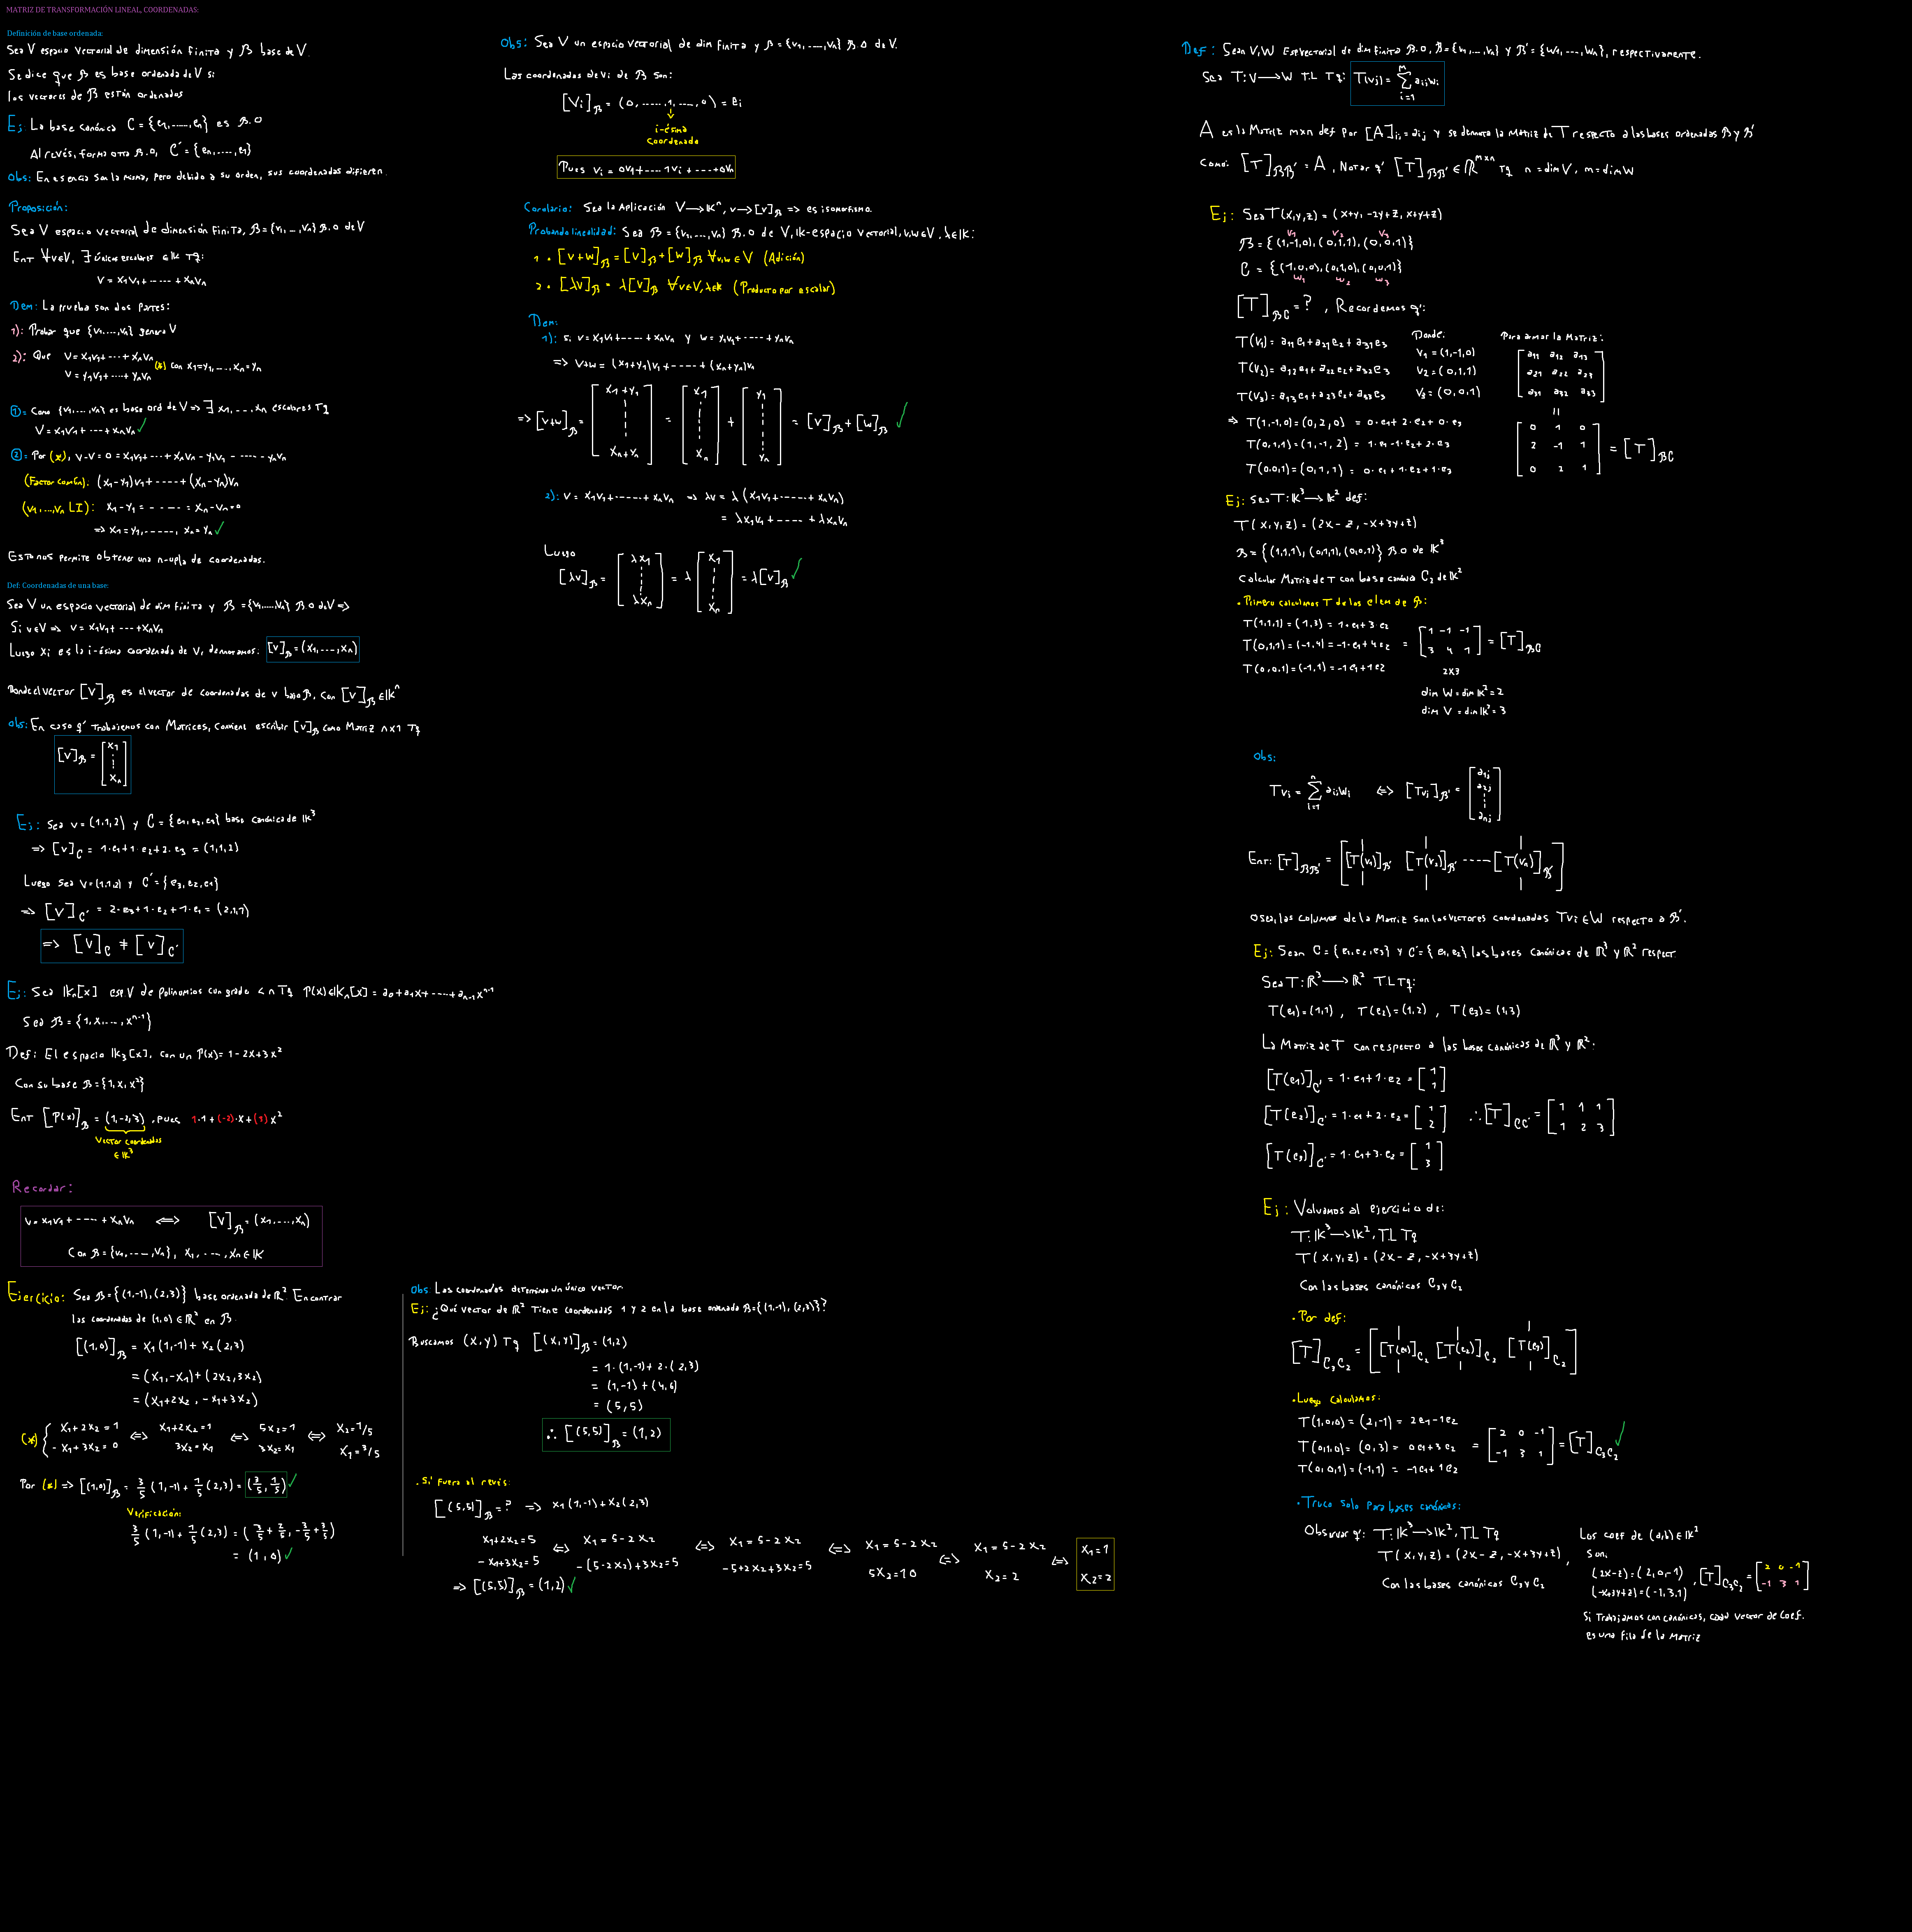 MATRIZ DE TRANSFORMACIÓN LINEAL, COORDENADAS:
Definición de base ordenada:
Sea V espacio vectorial de dimensión finita y B base de V.
Se dice que B es base ordenada de V si
los vectores de B están ordenados
Ej La base canónica C = {e₁,.....,eₙ} es B.O
Al revés, forma otra B.O, C' = {eₙ,....,e₁}
Obs: En esencia son la misma, pero debido a su orden, sus coordenadas difieren.
Proposición:
Sea V espacio vectorial de dimensión finita, B = {v₁,...,vₙ} B.O de V
Ent ∀v∈V, ∃ únicos escalares ∈ K Tq:
V = x₁v₁ + ..... + xₙvₙ
Dem: La prueba son dos partes:
1): Probar que {v₁,...,vₙ} genera V
2): Que V = x₁v₁ + ... + xₙvₙ
V = y₁v₁ + .... + yₙvₙ (*) con x₁=y₁,....,xₙ=yₙ
① = Como {v₁,...,vₙ} es base ord de V => ∃ x₁,...,xₙ escalares Tq
V = x₁v₁ + ... + xₙvₙ ✓
② = Por (*), v-v = 0 = x₁v₁ + ... + xₙvₙ - y₁v₁ - .... - yₙvₙ
(Factor común): (x₁-y₁)v₁ + .... + (xₙ-yₙ)vₙ
(v₁,...,vₙ LI): x₁-y₁ = - - - - = xₙ-yₙ = 0
=> x₁=y₁,....., xₙ=yₙ ✓
Esto nos permite obtener una n-upla de coordenadas.
Def: Coordenadas de una base:
Sea V un espacio vectorial de dim finita y B = {v₁,....,vₙ} B.O de V =>
Si v∈V => v = x₁v₁ + ... + xₙvₙ
Luego xi es la i-ésima coordenada de V, denotamos: [v]_B = (x₁,...,xₙ)
Donde el vector [v]_B es el vector de coordenadas de v bajo B, con [v]_B ∈ Kⁿ
Obs: En caso q' trabajemos con Matrices, conviene escribir [v]_B como Matriz nx1 Tq
[v]_B = [x₁ ⋮ xₙ]
Ej: Sea v = (1,1,2) y C = {e₁,e₂,e₃} base canónica de K³
=> [v]_C = 1·e₁+1·e₂+2·e₃ = (1,1,2)
Luego sea v = (1,1,2) y C' = {e₃,e₂,e₁}
=> [v]_C' = 2·e₃+1·e₂+1·e₁ = (2,1,1)
=> [v]_C ≠ [v]_C'
Ej: Sea Kₙ[x] esp.V de polinomios con grado < n Tq P(x)∈Kₙ[x] = a₀+a₁x+.....+aₙ₋₁xⁿ⁻¹
Sea B = {1,x,...,xⁿ⁻¹}
Def: El espacio K₃[x], con un P(x) = 1-2x+3x²
Con su base B = {1,x,x²}
Ent [P(x)]_B = (1,-2,3), pues 1·1+(-2)·x+(3)x²
Vector coordenadas
∈ K³
Recordar:
v = x₁v₁ + ---- + xₙvₙ <=> [v]_B = (x₁,...,xₙ)
Con B = {v₁,...,vₙ}, x₁,....,xₙ ∈ K
Ejercicio: Sea B = {(1,-1),(2,3)} base ordenada de R². Encontrar
las coordenadas de (1,0) ∈ R² en B.
[(1,0)]_B = x₁(1,-1) + x₂(2,3)
= (x₁,-x₁) + (2x₂,3x₂)
= (x₁+2x₂, -x₁+3x₂)
(*) { x₁+2x₂=1 <=> x₁+2x₂=1 <=> 5x₂=1 <=> x₂=1/5
-x₁+3x₂=0 3x₂=x₁ 3x₂=x₁ x₁=3/5
Por (*) => [(1,0)]_B = 3/5 (1,-1) + 1/5 (2,3) = (3/5, 1/5) ✓
Verificación:
3/5 (1,-1) + 1/5 (2,3) = (3/5+2/5, -3/5+3/5)
= (1,0) ✓
Obs: Las coordenadas determinan un único vector.
Ej: ¿Qué vector de R² tiene coordenadas 1 y 2 en la base ordenada B={(1,-1),(2,3)}?
Buscamos (x,y) Tq [(x,y)]_B = (1,2)
= 1·(1,-1) + 2·(2,3)
= (1,-1) + (4,6)
= (5,5)
∴ [(5,5)]_B = (1,2)
· Si fuera al revés:
[(5,5)]_B = ? => x₁(1,-1) + x₂(2,3)
x₁+2x₂=5 <=> x₁=5-2x₂ <=> x₁=5-2x₂ <=> x₁=5-2x₂ <=> x₁=5-2x₂ <=> x₁=1
-x₁+3x₂=5 -(5-2x₂)+3x₂=5 -5+2x₂+3x₂=5 5x₂=10 x₂=2 x₂=2
=> [(5,5)]_B = (1,2) ✓
Obs: Sea V un espacio vectorial de dim finita y B = {v₁,....,vₙ} B.O de V.
Las coordenadas de vi de B son:
[Vi]_B = (0,.....,1,....,0) = ei
i-ésima
coordenada
Pues vi = 0v₁ + .... 1vi + ... + 0vₙ
Corolario: Sea la Aplicación V→Kⁿ, v→[v]_B => es isomorfismo.
Probando linealidad: Sea B = {v₁,....,vₙ} B.O de V, K-espacio vectorial, v,w∈V, λ∈K:
1. [v+w]_B = [v]_B + [w]_B ∀v,w∈V (Adición)
2. [λv]_B = λ[v]_B ∀v∈V, λ∈K (Producto por escalar)
Dem:
1): Si v = x₁v₁ + ..... + xₙvₙ y w = y₁v₁ + .... + yₙvₙ
=> v+w = (x₁+y₁)v₁ + ..... + (xₙ+yₙ)vₙ
=> [v+w]_B = [x₁+y₁ ⋮ xₙ+yₙ] = [x₁ ⋮ xₙ] + [y₁ ⋮ yₙ] = [v]_B + [w]_B ✓
2): v = x₁v₁ + ..... + xₙvₙ => λv = λ(x₁v₁ + ..... + xₙvₙ)
= λx₁v₁ + .... + λxₙvₙ
Luego
[λv]_B = [λx₁ ⋮ λxₙ] = λ [x₁ ⋮ xₙ] = λ[v]_B ✓
Def: Sean V,W Esp.vectorial de dim finita B.O, B = {v₁,...,vₙ} y B' = {w₁,...,wₙ}, respectivamente.
Sea T: V→W T.L Tq: T(vj) = Σ_{i=1}^{m} aij wi
A es la Matriz mxn def por [A]ij = aij y se denota la Matriz de T respecto a las bases ordenadas B y B'
Como: [T]_BB' = A, Notar q' [T]_BB' ∈ R^{mxn} Tq n = dim V, m = dim W
Ej: Sea T(x,y,z) = (x+y, -2y+z, x+y+z)
v₁ v₂ v₃
B = {(1,-1,0),(0,1,1),(0,0,1)}
C = {(1,0,0),(0,1,0),(0,0,1)}
w₁ w₂ w₃
[T]_BC = ?, Recordemos q':
T(v₁) = a₁₁e₁+a₂₁e₂+a₃₁e₃
T(v₂) = a₁₂e₁+a₂₂e₂+a₃₂e₃
T(v₃) = a₁₃e₁+a₂₃e₂+a₃₃e₃
Donde:
v₁ = (1,-1,0)
v₂ = (0,1,1)
v₃ = (0,0,1)
Para armar la Matriz:
a₁₁ a₁₂ a₁₃
a₂₁ a₂₂ a₂₃
a₃₁ a₃₂ a₃₃
=> T(1,-1,0) = (0,2,0) = 0·e₁+2·e₂+0·e₃
T(0,1,1) = (1,-1,2) = 1·e₁-1·e₂+2·e₃
T(0,0,1) = (0,1,1) = 0·e₁+1·e₂+1·e₃
=
0 1 0
2 -1 1 = [T]_BC
0 2 1
Ej: Sea T: K³→K² def:
T(x,y,z) = (2x-z, -x+3y+z)
B = {(1,1,1),(0,1,1),(0,0,1)} B.O de K³
Calcular Matriz de T con base canónica C₂ de K²
· Primero calculamos T de los elem de B:
T(1,1,1) = (1,3) = 1·e₁+3·e₂
T(0,1,1) = (-1,4) = -1·e₁+4e₂
T(0,0,1) = (-1,1) = -1e₁+1e₂
= [1 -1 -1
3 4 1] = [T]_BC
2x3
dim W = dim K² = 2
dim V = dim K³ = 3
Obs:
Tvi = Σ_{i=1}^{n} aij wi <=> [Tvj]_B' = [a₁j a₂j ⋮ anj]
Ent: [T]_BB' = [[T(v₁)]_B' [T(v₂)]_B' ----- [T(vₙ)]_B']
Osea, las columnas de la Matriz son los vectores coordenadas Tvi ∈ W respecto a B'.
Ej: Sean C = {e₁,e₂,e₃} y C' = {e₁,e₂} las bases canónicas de R³ y R² respect.
Sea T: R³→R² TL Tq:
T(e₁) = (1,1), T(e₂) = (1,2), T(e₃) = (1,3)
La Matriz de T con respecto a las bases canónicas de R³ y R²:
[T(e₁)]_C' = 1·e₁+1·e₂ = [1 1]
[T(e₂)]_C' = 1·e₁+2·e₂ = [1 2] ∴ [T]_CC' = [1 1 1
1 2 3]
[T(e₃)]_C' = 1·e₁+3·e₂ = [1 3]
Ej: Volvamos al ejercicio de:
T: K³→K², TL Tq
T(x,y,z) = (2x-z, -x+3y+z)
Con las bases canónicas C₃ y C₂
· Por def:
[T]_C₃C₂ = [[T(e₁)]_C₂ [T(e₂)]_C₂ [T(e₃)]_C₂]
· Luego calculamos:
T(1,0,0) = (2,-1) = 2e₁-1e₂
T(0,1,0) = (0,3) = 0e₁+3e₂
T(0,0,1) = (-1,1) = -1e₁+1e₂
= [2 0 -1
-1 3 1] = [T]_C₃C₂ ✓
· Truco solo para bases canónicas:
Observar q': T: K³→K², TL Tq
T(x,y,z) = (2x-z, -x+3y+z),
Con las bases canónicas C₃ y C₂
Los coef de (a,b) ∈ K²
Son:
(2x-z) = (2,0,-1)
(-x+3y+z) = (-1,3,1), [T]_C₃C₂ = [2 0 -1
-1 3 1]
Si trabajamos con canónicas, cada vector de coef.
es una fila de la Matriz